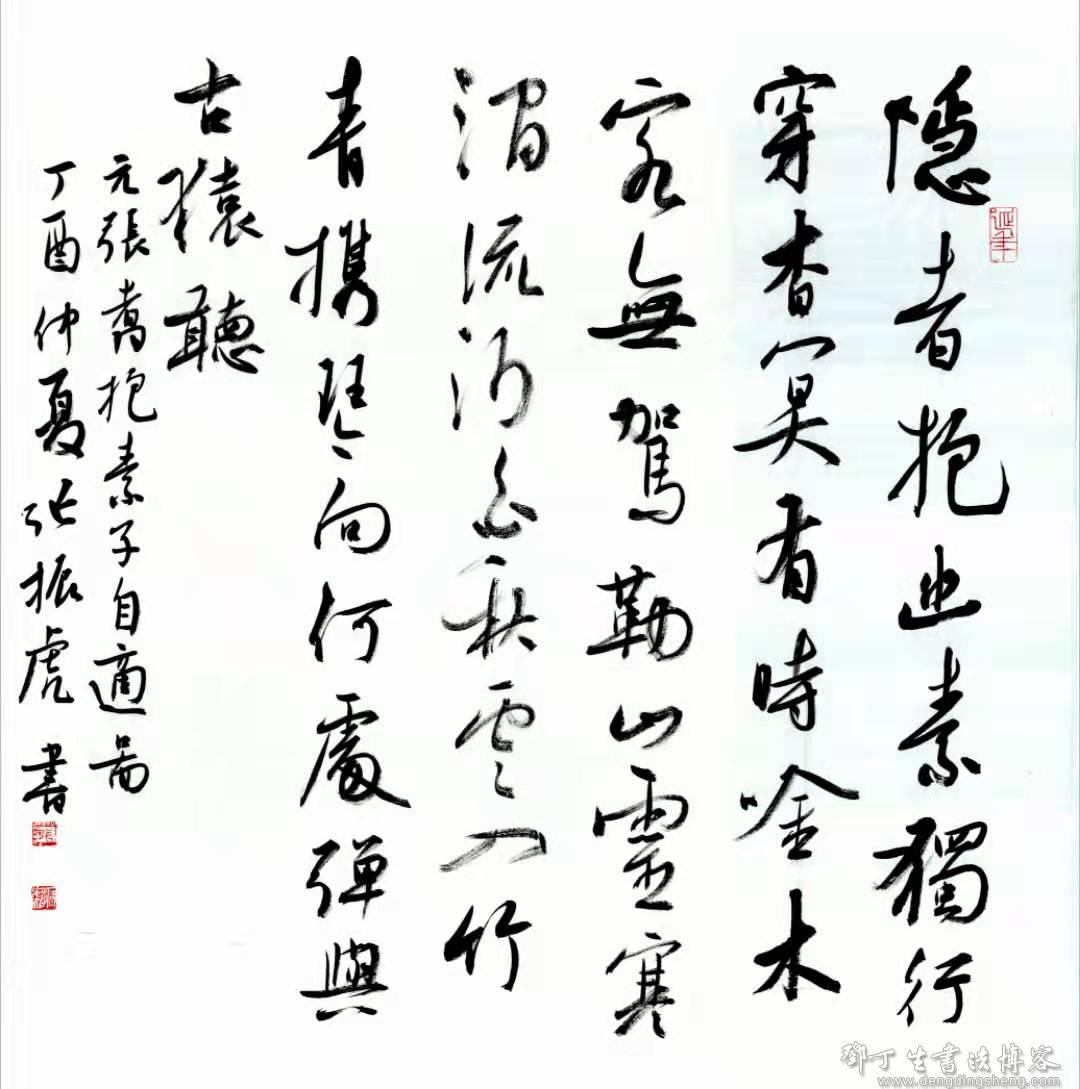 隱者抱幽素獨行
穿杳冥有時唫木
客無駕勒山靈寒
澗流沙白秋雲入竹
青携琴向何處弹與
古猿聽
元張翥抱素子自適啚
丁酉仲夏张振虎書
延年
鄧丁生書法博客
www.dengdingsheng.com